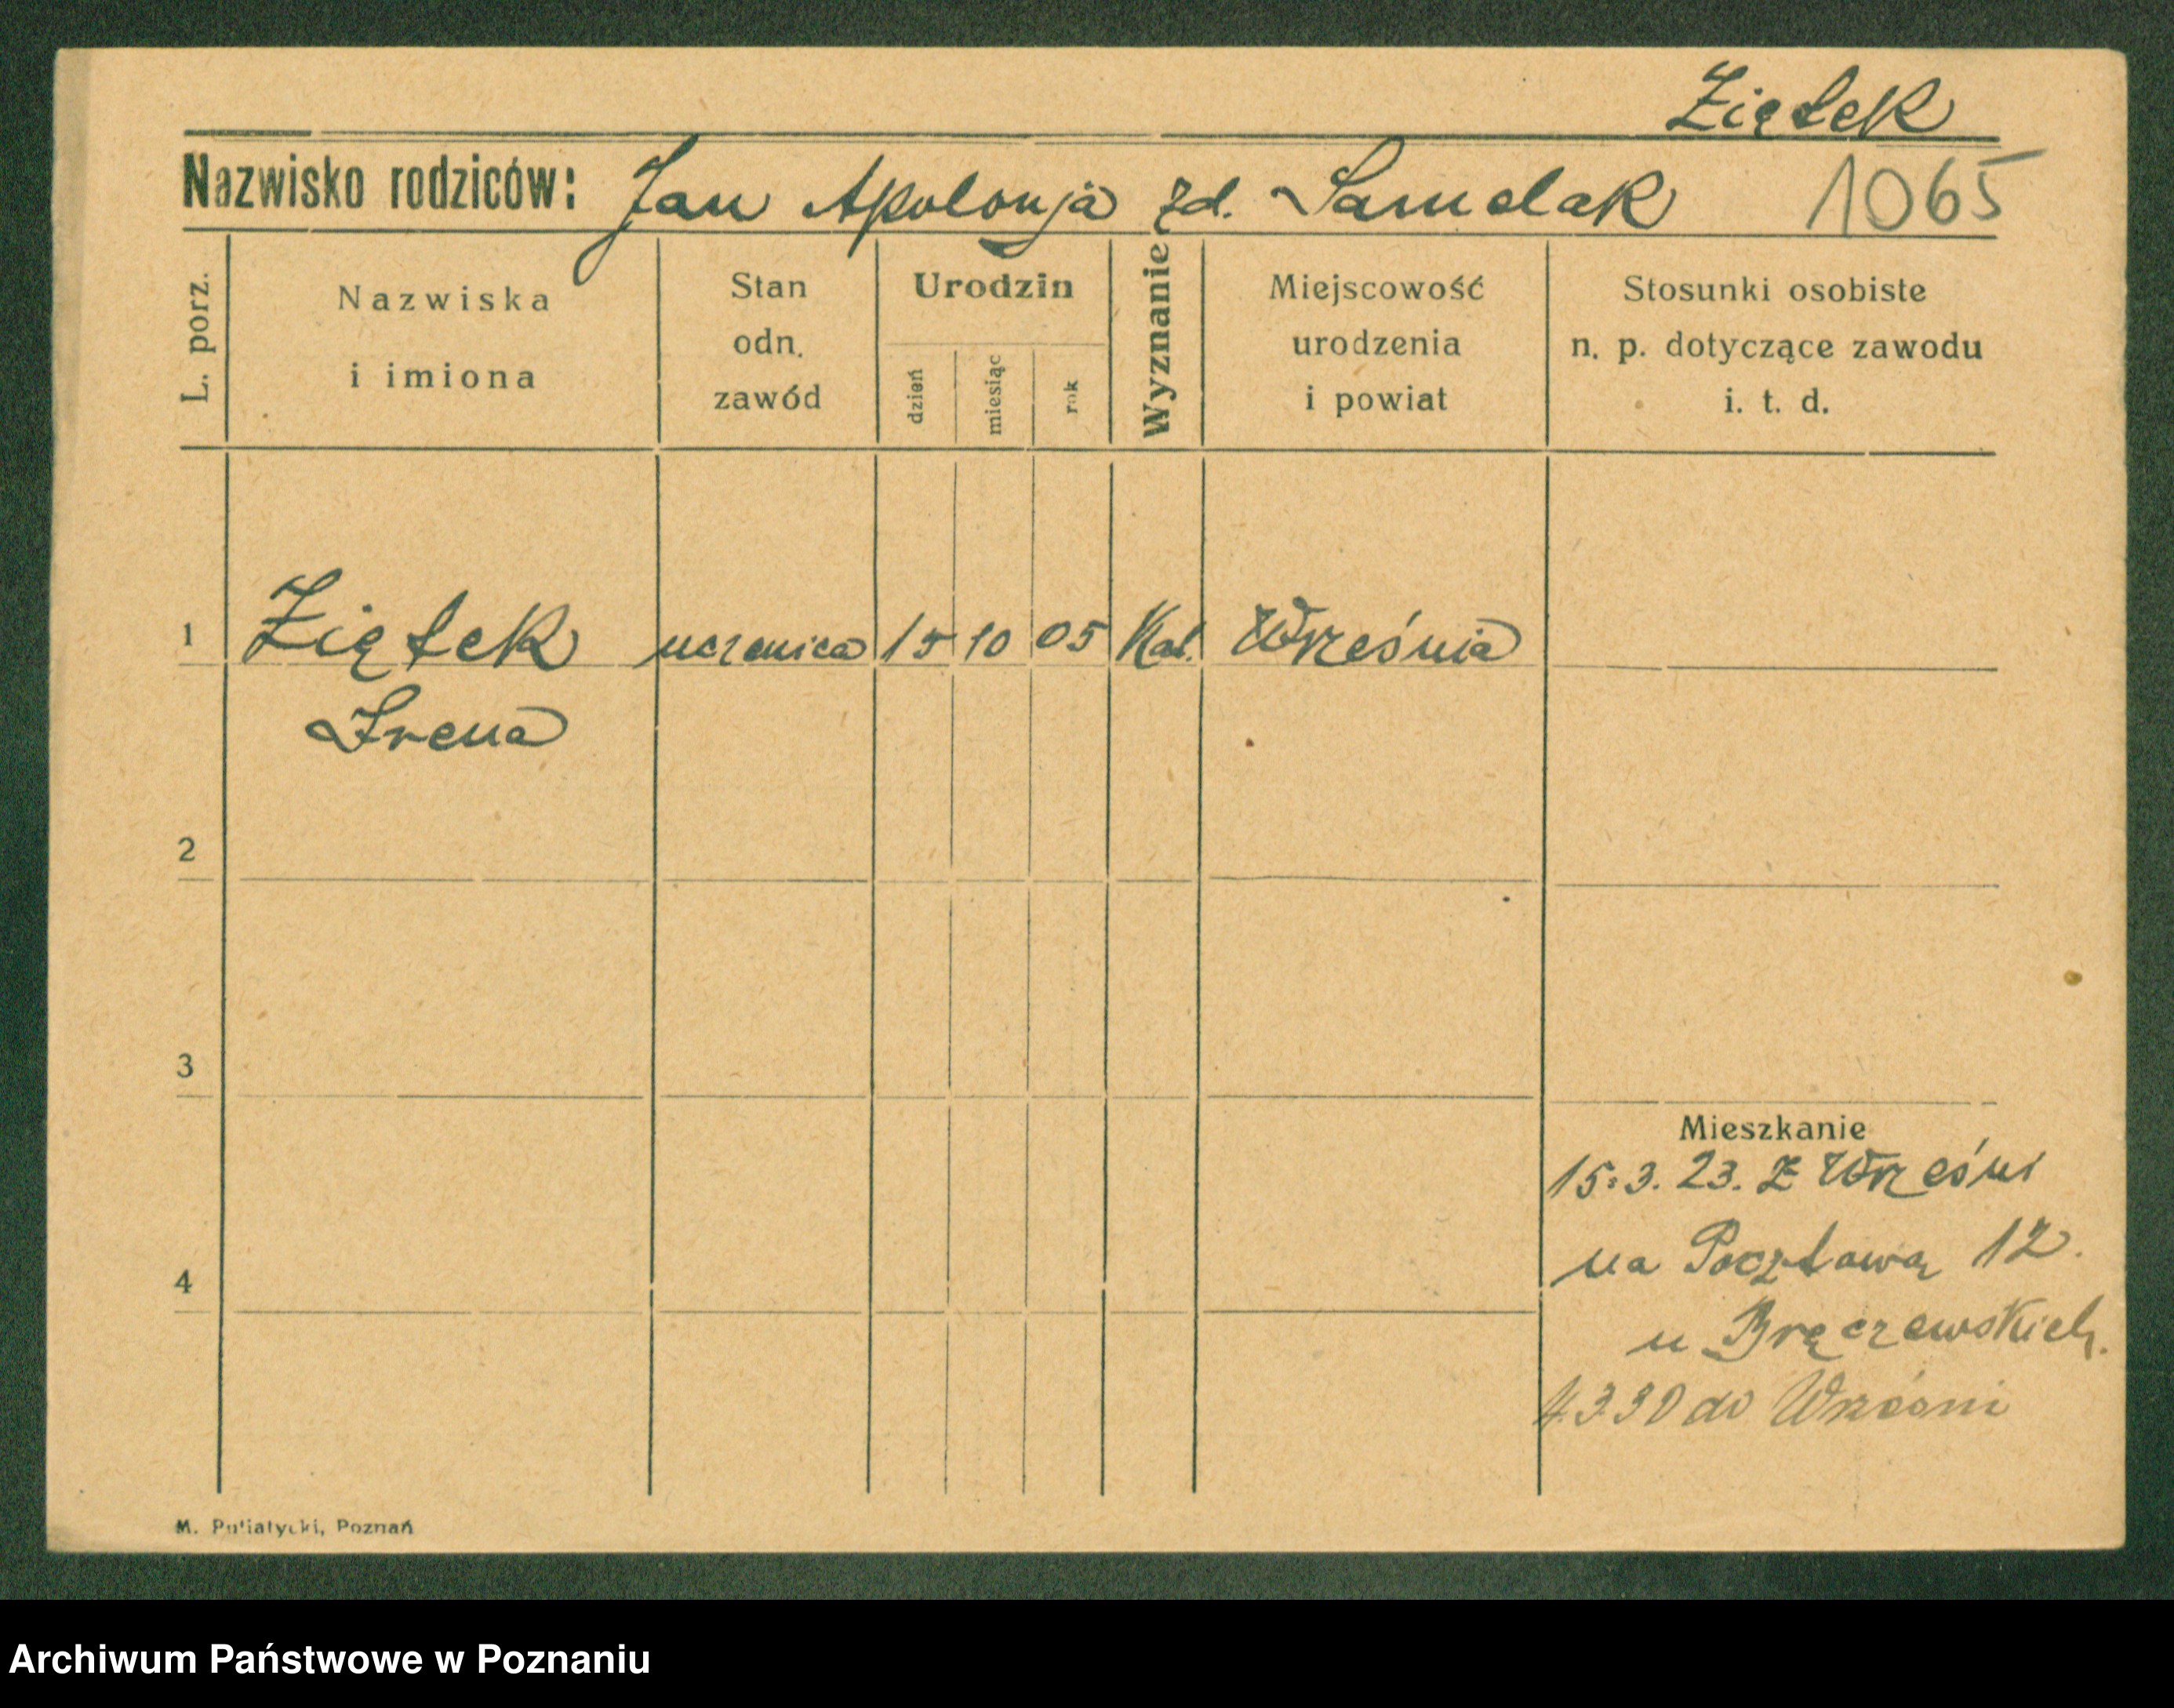 Ziętek
Nazwisko rodziców: Jan Apolonja zd. Samolak 1065
L. porz.
Nazwiska
i imiona
Stan
odn.
zawód
Urodzin
dzień
miesiąc
rok
Wyznanie
Miejscowość
urodzenia
i powiat
Stosunki osobiste
n. p. dotyczące zawodu
i. t. d.
1 Ziętek uczenica 15 10 05 Kat. Września
Irena
2
3
Mieszkanie
15.3.23. z Wrześni
na Pocztową 12.
4
u Bręczewskich.
4.3.30 do Wrześni
M. Putiatycki, Poznań
Archiwum Państwowe w Poznaniu